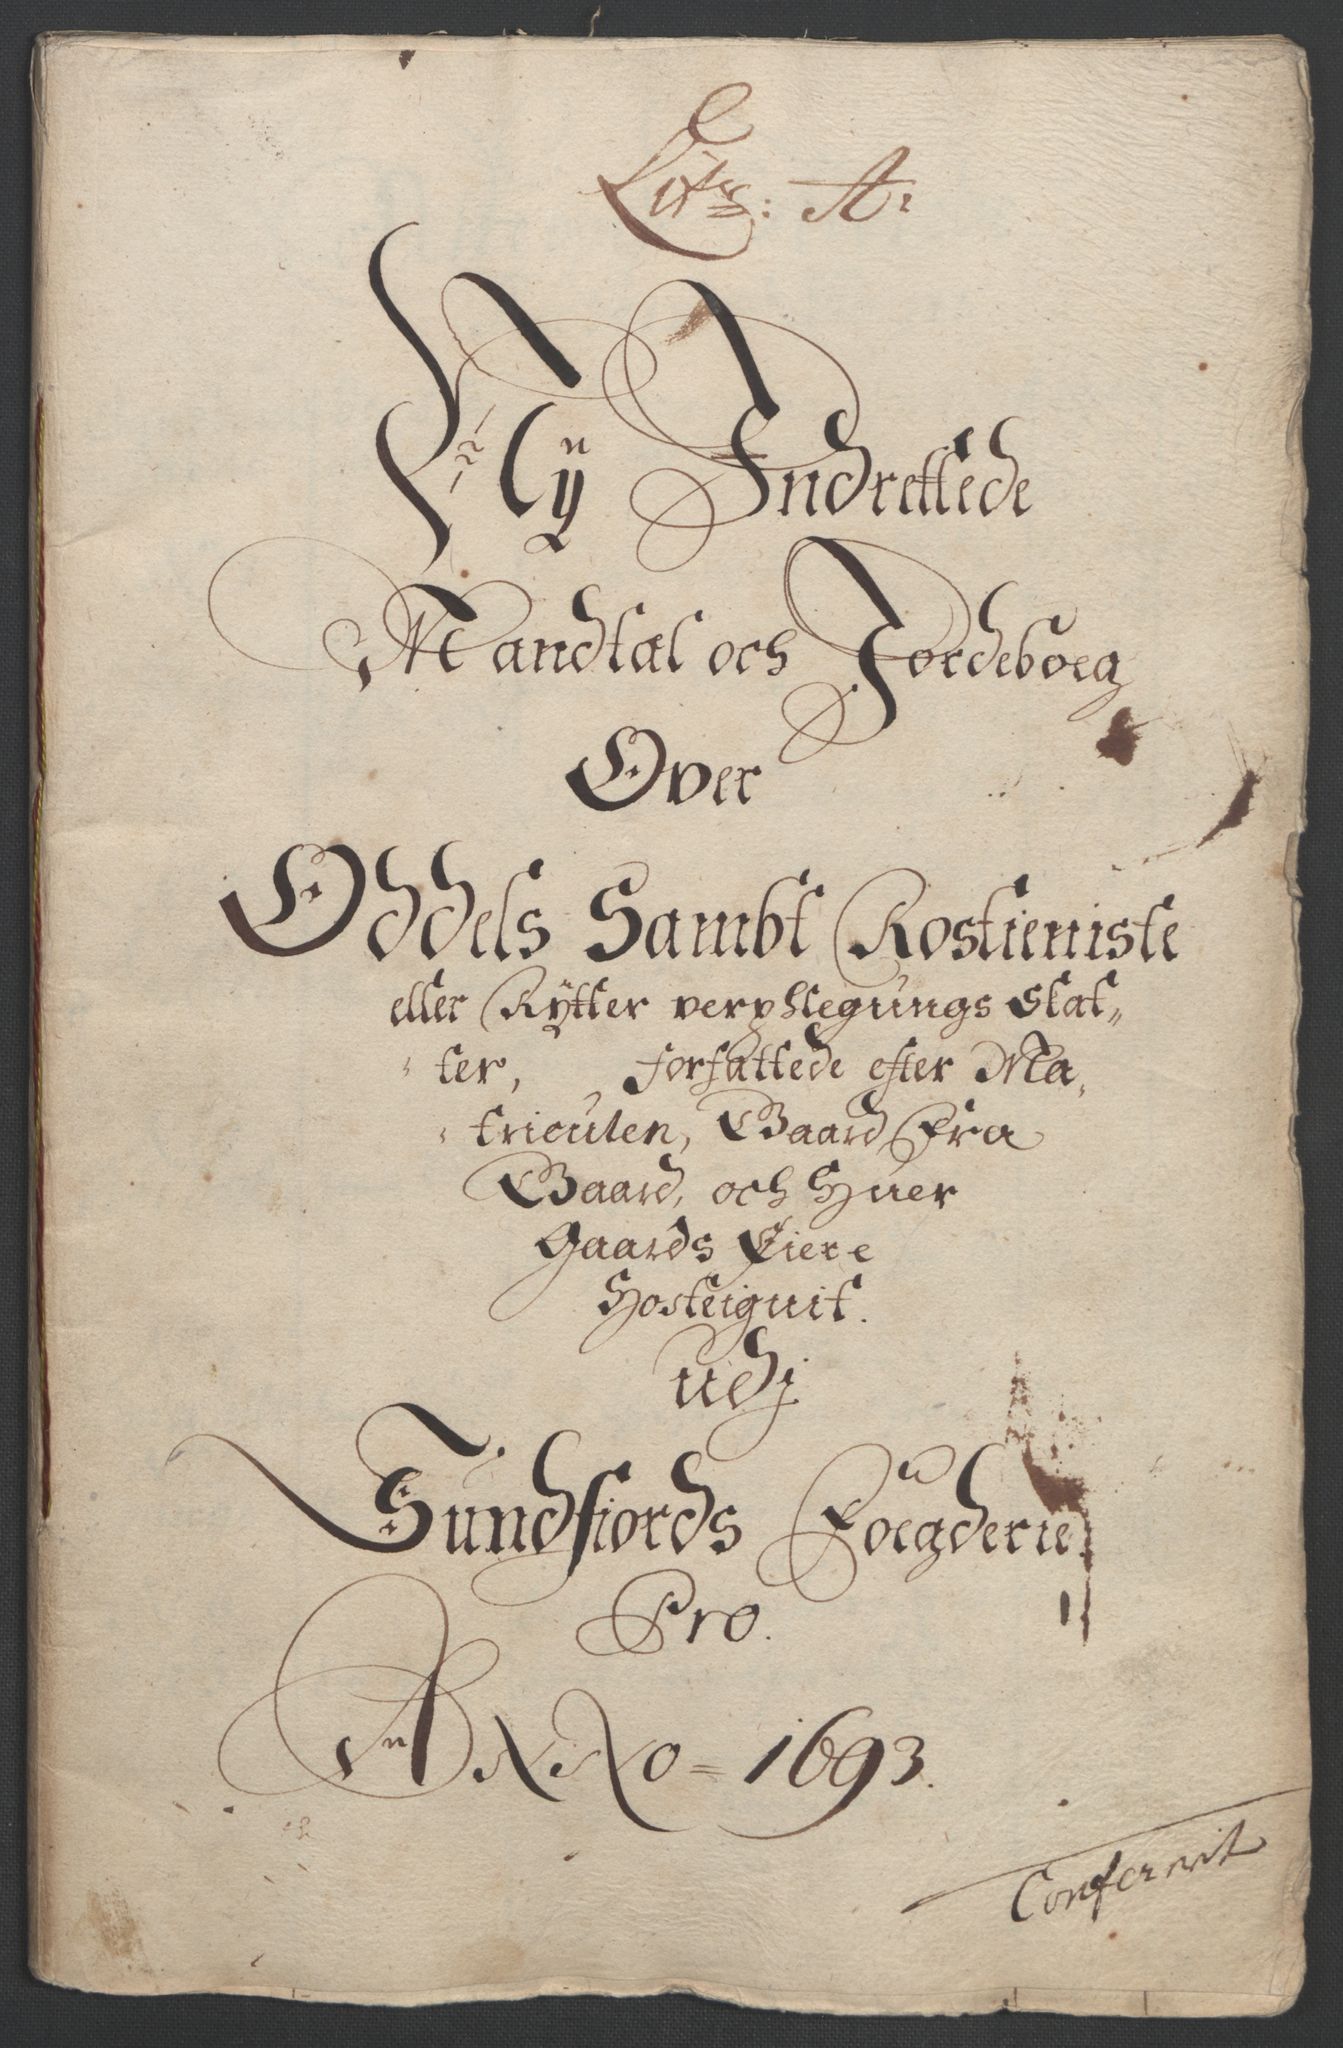 Litr: A:
Nÿ Indrettede
Mandtal och Jordeboeg
Over
Oddels Sambt Rostieniste
eller Rÿtter verphlegungs Skat„
„ter, forfattede efter Ma„
„triculen, Gaard fra
Gaard, och Huer
Gaards Eiere
Hosteignit.
udj
Sundfiords Foegderie
Pro.
ANNo = 1693.
Confererit